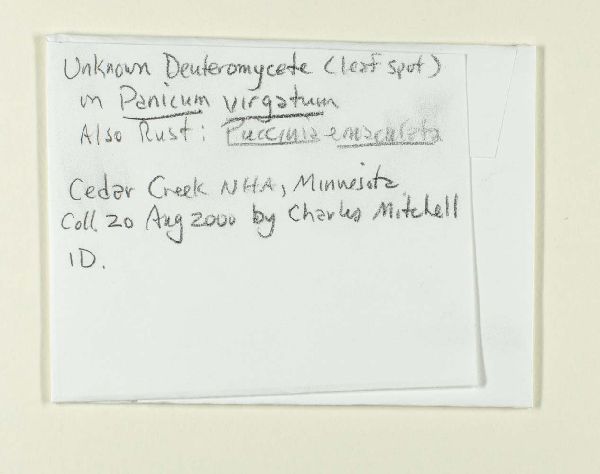 Unknown Deuteromycete (leaf spot)
on Panicum virgatum
Also Rust: Puccinia emaculata
Cedar Creek NHA, Minnesota
Coll. 20 Aug 2000 by Charles Mitchell
ID.